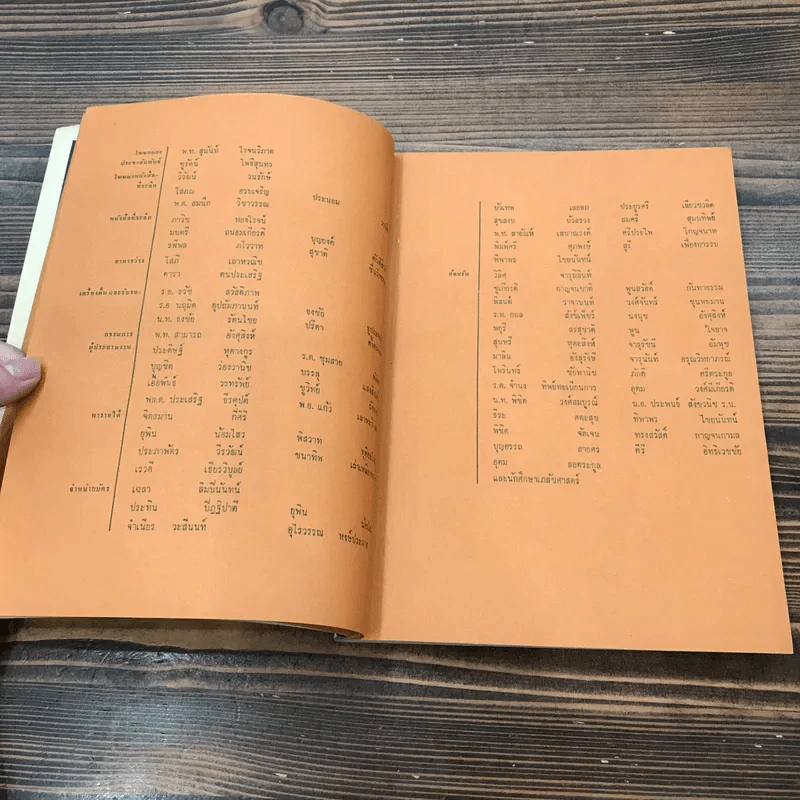 โฆษณาและ พ.ท. สุนันท์ โรจนวิภาต
ประชาสัมพันธ์ ชูรัตน์ โพธิสุนทร
โฆษณาหนังสือ- วิวัฒน์ วนรักษ์
ที่ระลึก โสภณ อวบเจริญ ประนอม
พ.ต. สมนึก วิชาวรรณ
หนังสือที่ระลึก ภาวิช ทองโรจน์
มนตรี ถนอมเกียรติ บุญยงค์
รพีพล ภโววาท สุชาติ
อาหารว่าง โสภี เลาหวณิช
ดารา ตนประเสริฐ
เครื่องดื่ม และรับรอง ร.อ. ธวัช สวัสดิภาพ
ร.อ. นฤมิต อุปถัมภานนท์ ธงชัย
น.ท. ธงชัย รัตนไชย ปรีดา
กรรมการ พ.ท. สามารถ อังศุสิงห์
ผู้ประสานงาน ประดิษฐ์ หุตางกูร ร.ต. ชุมสาย
บุญชิต ว่องวานิช บรรลุ
เอื้อพันธุ์ วรทรัพย์ ชูวิทย์
พล.ต. ประเสริฐ ธีรคุปต์ พ.อ. แก้ว
พาราไดส์ จิตรมาน กี่ศิริ
ยุพิน น้อมไสว พิสวาท
ประภาพัตร วีรวัฒน์ ชนาทิพ
เรวดี เธียรวิบูลย์
จำหน่ายบัตร เฉลา ลิมปินันทน์
ประทิน ปีฎฐิปาตี ยุพิน
จำเนียร วะสีนนท์ อุไรวรรณ
บัวเทพ เลอลภ ประยูรศรี เลี้ยวชวลิต
สุขสงบ บัวสรวง สมศรี สุนนทิพย์
พ.ท. สายัณห์ เสนาณรงค์ ศรีประไพ โกญจนาท
พิมพ์ศรี สุภพงษ์ สุรี เฟื่องการรบ
ทิพาพร ไชยนันทน์
ต้อนรับ วิลิศ จารุอิลินท์
ชูเกียรติ กาญจนชาติ พูนสวัสดิ์ กันทาธรรม
พิสนต์ วาจานนท์ วงศ์จันทร์ ขุนพรมาน
ร.ท. กมล สังข์เพ็ชร์ นงนุช อังศุสิงห์
พกุรี ลรสุชาติ พูน ใจอาจ
สุนทรี หุตะสิงห์ จารุรัชนี อัมพุช
มาลัน อังสุรังษี จารุนันท์ อรุณวิทยาภรณ์
ไพรินทร์ ชัยพานิช ภักดี ศรีตระกูล
ร.ต. จำนง ทิพย์ทะเบียนการ อุดม วงศ์มีเกียรติ
น.ท. พิชิต วงศ์สมบูรณ์ น.อ. ประพนธ์ สังขวนิช ร.น.
ธีระ คตะสุข ทิพาพร ไชยนันทน์
พิชิต จัดเจน ทรงสวัสดิ์ กาญจนกามล
บุญอรรถ สายศร ศิริ อิทธิเวชชัย
อุดม ลยตระกูล
และนักศึกษาเภสัชศาสตร์